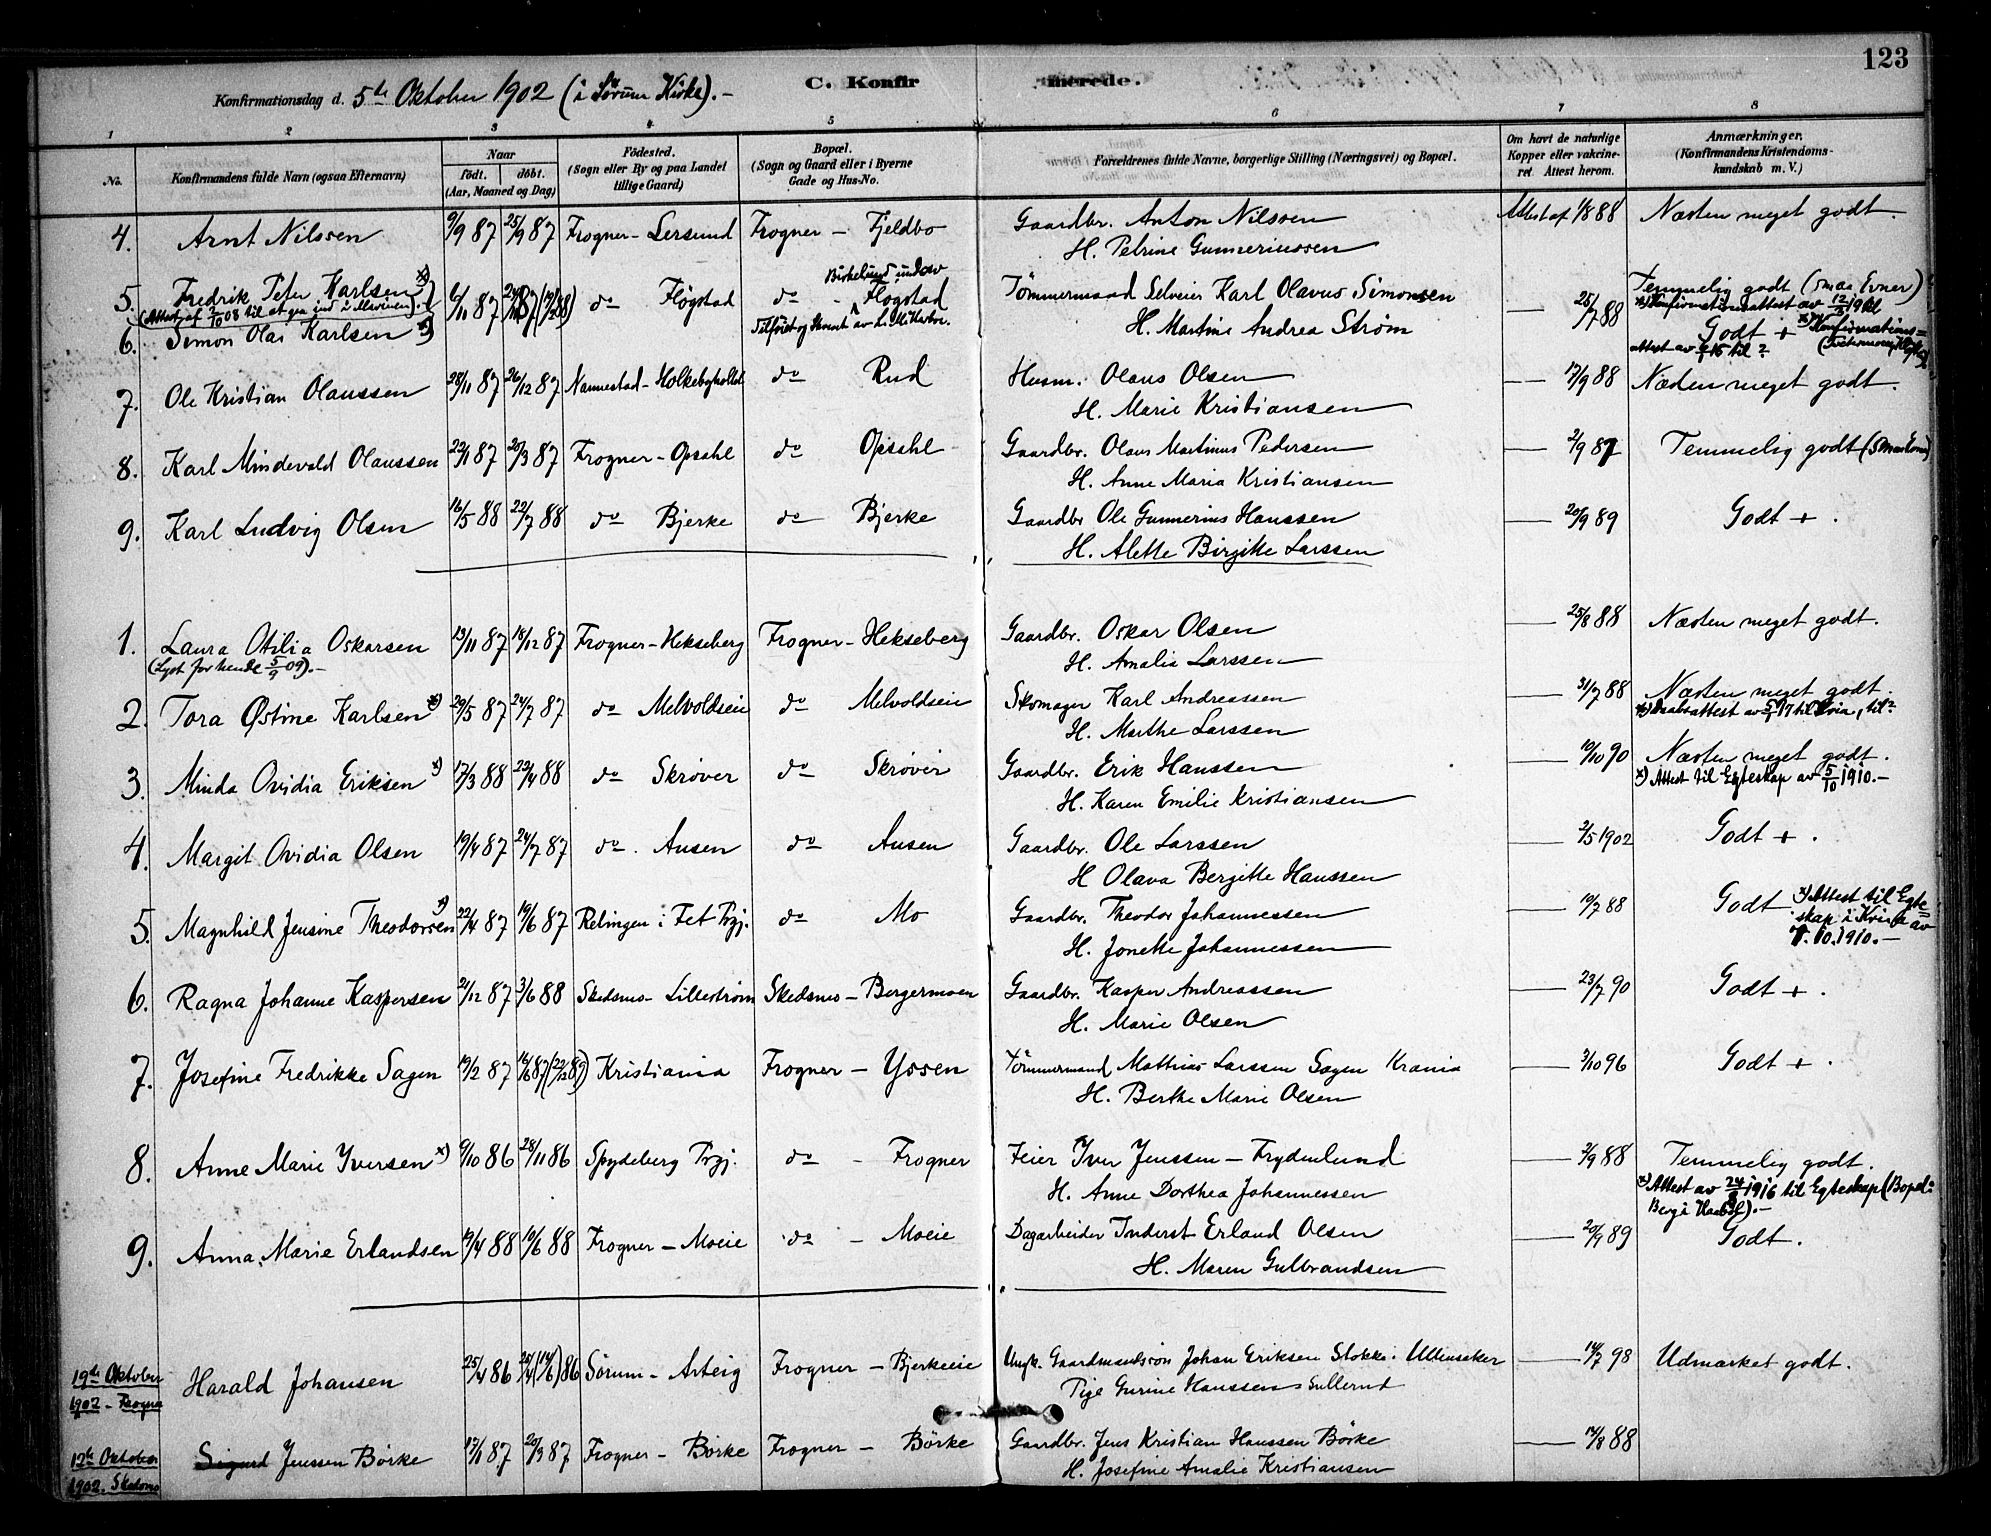 123
Konfirmationsdag d. 5te Oktober 1902 (i Sørum Kirke).-
C. Konfirmerede.
1 2 3 4 5 6 7 8
No. Konfirmandens fulde Navn (ogsaa Efternavn) Naar født. døbt. (Aar, Maaned og Dag) Fødested. (Sogn eller By og paa Landet tillige Gaard) Bopæl. (Sogn og Gaard eller i Byerne Gade og Hus-No. Forældrenes fulde Navne, borgerlige Stilling (Næringsvei) og Bopæl. Om havt de naturlige Kopper eller vakcineret. Attest herom. Anmærkninger. (Konfirmandens Kristendomskundskab m. V.)
4. Arnt Nilssen 9/9 87 25/9 87 Frogner - Lersund Frogner - Fjeldbo Gaardbr. Anton Nilssen Attest af 1/8 88 Næsten meget godt.
H. Petrine Gunneriussen
5. Fredrik Peter Karlsen x) 6/11 87 do Fløgstad do - Fløgstad Tømmermand Selveier Karl Olavus Simonsen 25/7 88 Temmelig godt (smaa Evner)
(Attest af 2/10 08 til at gaa ind i Marinen) Birkelund under x) Konfirmationsattest av 12/5 1911
6. Simon Olai Karlsen x) H. Martine Andrea Strøm Godt + x) Konfirmations=
attest av til?
7. Ole Kristian Olaussen 28/11 87 26/12 87 Nannestad - do Rud Husm. Olaus Olsen — 17/9 88 Næsten meget godt.
H. Marie Kristiansen
8. Karl Mindevald Olaussen 22/1 87 20/3 87 Frogner - Opsahl do Opsahl Gaardbr. Olaus Martinus Pedersen — 2/9 87 Temmelig godt (Smaa Evner)
H. Anne Maria Kristiansen
9. Karl Ludvig Olsen 16/5 88 22/7 88 do Bjerke do Bjerke Gaardbr Ole Gunnerius Hanssen — 20/9 89 Godt + .
H. Alette Birgitte Larssen
1. Laura Otilia Oskarsen 13/11 87 18/12 87 Frogner - Hekseberg Frogner - Hekseberg Gaardbr. Oskar Olsen — 25/8 88 Næsten meget godt.
(Lyst for hende 5/9 09).- H. Amalie Larssen
2. Tora Østine Karlsen x) 29/5 87 24/7 87 do Melvoldseie do Melvoldseie Skomager Karl Andreassen — 31/7 88 Næsten meget godt.
H. Marthe Larssen x) Daabsattest av 5/1 17 til Kria, til?
3. Minda Ovidia Eriksen x) 17/3 88 22/4 88 do Skrøver do Skrøver Gaardbr. Erik Hanssen — 10/10 90 Næsten meget godt.
H. Karen Emilie Kristiansen x) Attest til Egteskap av 5/10 1910.-
4. Margit Ovidia Olsen 19/4 87 24/7 87 do Ausen do Ausen Gaardbr. Ole Larssen — 2/5 1902 Godt + .
H Olava Bergitte Hanssen
5. Magnhild Jensine Theodorsen x) 22/4 87 19/6 87 Relingen i Fet Prgj. do Mo Gaardbr. Theodor Johannessen — 19/7 88 Godt x) Attest til Egte=
H. Jonette Johannessen skap i Kria av
7.10.1910.-
6. Ragna Johanne Kaspersen 21/12 87 3/6 88 Skedsmo - Lillestrøm Skedsmo - Bergermoen Gaardbr. Kasper Andreassen — 23/7 90 Godt + .
H. Marie Olsen
7. Josefine Fredrikke Sagen 19/2 87 16/6 87 (22/12 89) Kristiania Frogner - Yssen Tømmermand Mathias Larssen Sagen Krania — 3/10 96 Godt + .
H. Berthe Marie Olsen
8. Anne Marie Iversen x) 9/10 86 28/11 86 Spydeberg Prgj. do - Frogner Feier Iver Jenssen - Frydenlund — 2/9 88 Temmelig godt.
H. Anne Dorthea Johannessen x) Attest av 24/8 1916 til Egteskap (Bopel:
Berg i Høland).-
9. Anna Marie Erlandsen 19/4 88 10/6 88 Frogner - Moeie do - Moeie Dagarbeider Inderst Erland Olsen — 20/9 89 Godt.
H. Maren Gulbrandsen
19de Oktober Harald Johansen 25/4 86 Sørum - Asteig Frogner - Bjerkeeie Ungk. Gaardmandssøn Johan Eriksen Slokke i Ullensaker — 14/7 98 Udmærket godt.
1902 - Frogner Pige Gurine Hanssen
12te Oktober Sigurd Jenssen Børke 17/1 87 20/3 87 Frogner - Børke Frogner - Børke Gaardbr. Jens Kristian Hanssen Børke — 14/8 88
1902. Skedsmo H. Josefine Amalie Kristiansen